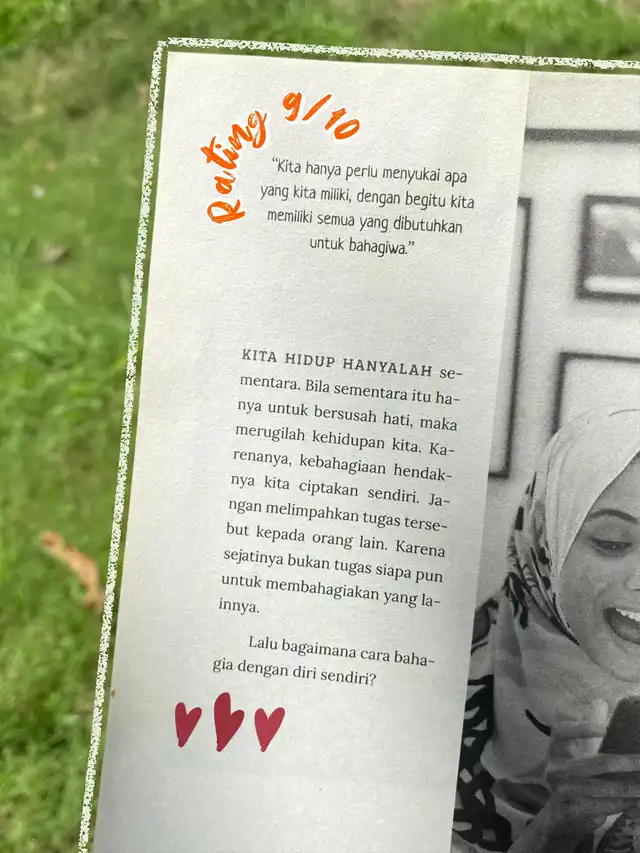 Rating 9/10
“Kita hanya perlu menyukai apa
yang kita miliki, dengan begitu kita
memiliki semua yang dibutuhkan
untuk bahagiwa.”
KITA HIDUP HANYALAH se-
mentara. Bila sementara itu ha-
nya untuk bersusah hati, maka
merugilah kehidupan kita. Ka-
renanya, kebahagiaan hendak-
nya kita ciptakan sendiri. Ja-
ngan melimpahkan tugas terse-
but kepada orang lain. Karena
sejatinya bukan tugas siapa pun
untuk membahagiakan yang la-
innya.
Lalu bagaimana cara baha-
gia dengan diri sendiri?